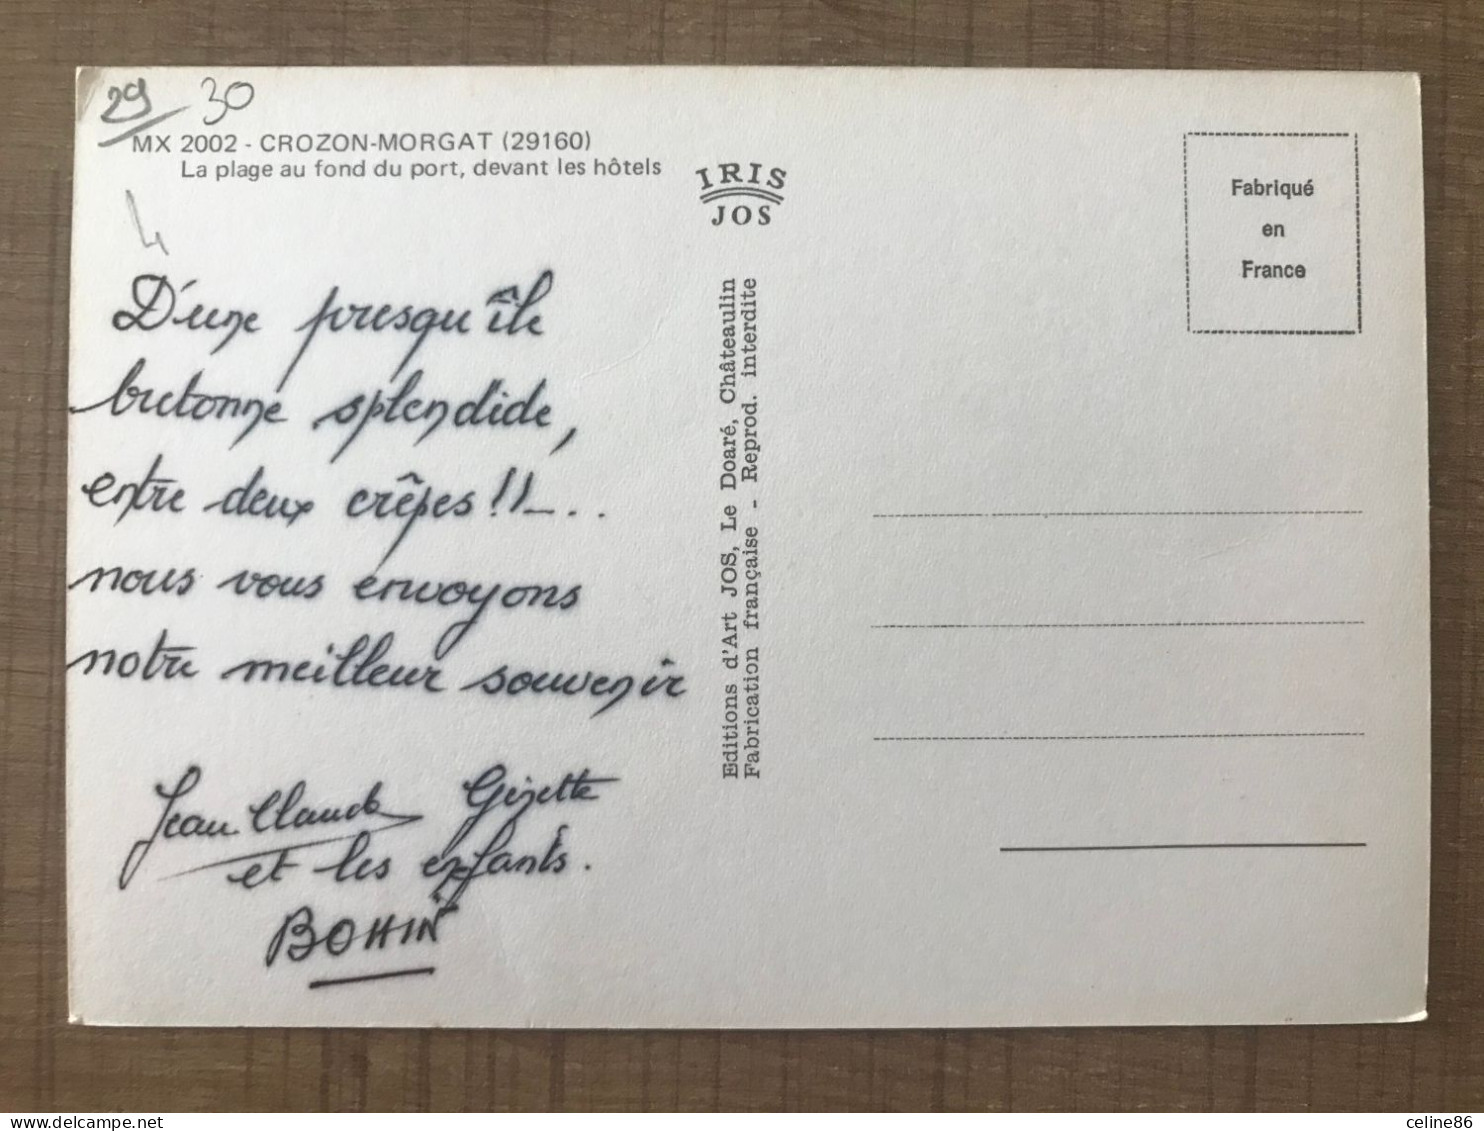 29 30
MX 2002 - CROZON-MORGAT (29160)
La plage au fond du port, devant les hôtels
4
D'une presqu'île
bretonne splendide,
entre deux crêpes !!_..
nous vous envoyons
notre meilleur souvenir
Jean Claude Gizette
et les enfants.
BOHIN
IRIS
JOS
Editions d'Art JOS, Le Doaré, Châteaulin
Fabrication française - Reprod. interdite
Fabriqué
en
France
celine86